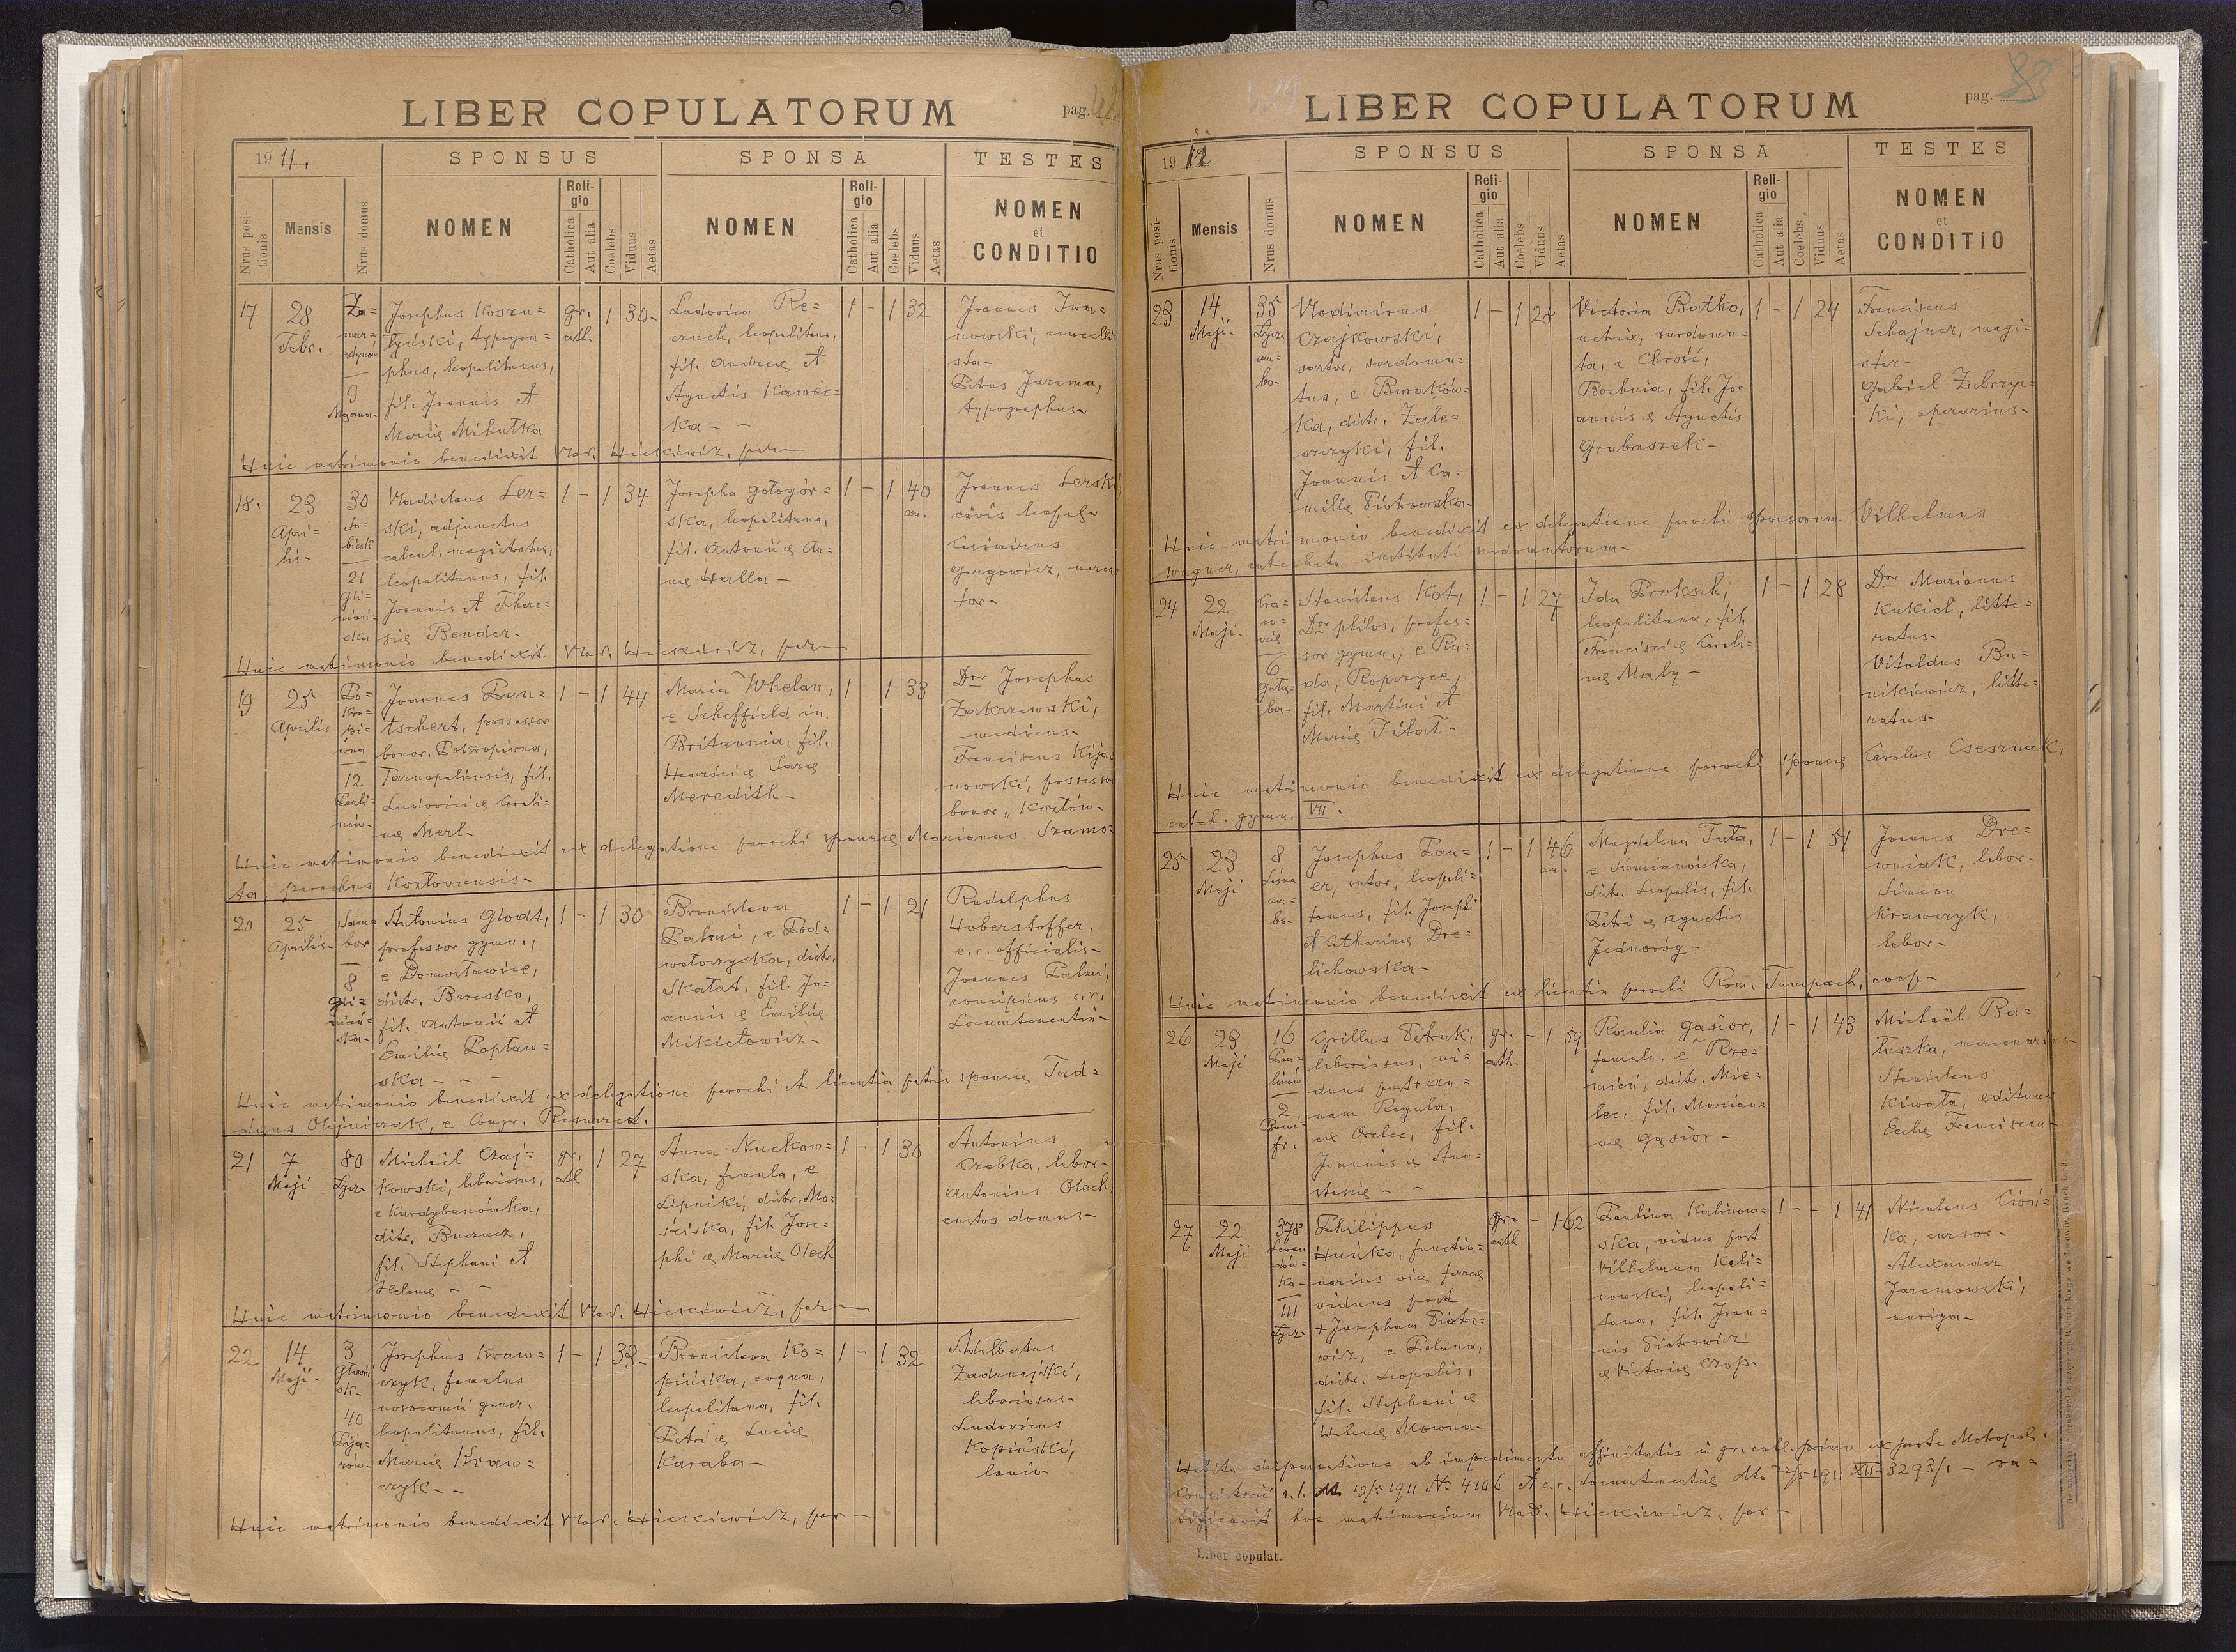 LIBER COPULATORUM
pag. 42
19 11.
SPONSUS
SPONSA
TESTES
Nrus posi-
tionis
Mensis
Nrus domus
NOMEN
Reli-
gio
Catholica
Aut alia
Coelebs
Viduus
Aetas
NOMEN
Reli-
gio
Catholica
Aut alia
Coelebs
Viduus
Aetas
NOMEN
et
CONDITIO
17
28
Febr.
Za-
mar-
9
Josephus Koszu-
tyński, typogra-
phus, leopolitanus,
fil. Joannis et
Mariæ Mihułka
gr.
cath.
1 30-
Ludovica Re-
czuch, leopolitana,
fil. Andreæ et
Agnetis Kawec-
ka - -
1 - 1 32
Joannes Iwa-
nowski, cancelli-
sta-
Petrus Jarema,
typographus-
Huic matrimonio benedixit Vlad. Hićkiewicz, par
18.
23
Apri-
lis-
30
So-
bieski
21
Gli-
niań-
ska
Vladislaus Ler-
ski, adjunctus
calcul. magistratus,
leopolitanus, fil.
Joannis et There-
siæ Bender-
1 - 1 34
Josepha Gołogór-
ska, leopolitana,
fil. Antonii & An-
næ Halla -
1 - 1 40
an.
Joannes Lerski
civis leopol-
Casimirus
Gergowicz, merca-
tor-
Huic matrimonio benedixit Vlad. Hićkiewicz, par
19
25
Aprilis
Po-
kro-
pi-
wna
12
Pauli-
nów-
Joannes Pun-
tschert, possessor
bonor. Pokropiwna,
Tarnopoliensis, fil.
Ludovici & Caroli-
næ Merl-
1 - 1 44
Maria Whelan,
e Scheffield in
Britannia, fil.
Henrici & Saræ
Meredith-
1 1 33
Dor Josephus
Zakrzewski,
medicus-
Franciscus Kija-
nowski, possessor
bonor. Kozłów-
Huic matrimonio benedixit ex delegatione parochi sponsæ Marianus Szamo-
ta, parochus Kozłoviensis-
20
25
Aprilis-
Sam-
bor
8
Gli-
niań-
ska-
Antonius Glodt,
professor gymn.,
e Domosławice,
distr. Brzesko,
fil. Antonii et
Emiliæ Popław-
ska - - -
1 - 1 30
Bronislava
Palmi, e Pod-
wołoczyska, distr.
Skałat, fil. Jo-
annis & Emiliæ
Mikietowicz-
1 - 1 21
Rudolphus
Hoberstoffer,
c. r. officialis-
Joannes Palmi,
concipiens c. r.
Locumtenentiæ-
Huic matrimonio benedixit ex delegatione parochi et licentia patris sponsæ Tad-
dæus Olejniczak, e Congr. Resurrect.
21
7
Maji
80
Łycz.
Michaël Czaj-
kowski, laboriosus,
e Kurdybanówka,
distr. Buczacz,
fil. Stephani et
Helenæ -
gr.
cath
1 27
Anna Nuckow-
ska, famula, e
Lipniki, distr. Mo-
ściska, fil. Jose-
phi & Mariæ Olech
1 - 1 30
Antonius
Czobka, labor-
Antonius Olech
custos domus-
Huic matrimonio benedixit Vlad. Hićkiewicz, par
22
14
Maji-
3
40
Pija-
rów-
Josephus Kraw-
czyk, famulus
nosocomii gener.
leopolitanus, fil.
Mariæ Kraw-
czyk - -
1 - 1 33-
Bronislava Ko-
pińska, coqua,
leopolitana, fil.
Petri & Luciæ
Karaba-
1 - 1 32
Adelbertus
Zadunajski,
laboriosus-
Ludovicus
Kopiński,
lanio-
Huic matrimonio benedixit Vlad. Hićkiewicz, par -
LIBER COPULATORUM
429
pag. 33
19 12
SPONSUS
SPONSA
TESTES
Nrus posi-
tionis
Mensis
Nrus domus
NOMEN
Reli-
gio
Catholica
Aut alia
Coelebs
Viduus
Aetas
NOMEN
Reli-
gio
Catholica
Aut alia
Coelebs
Viduus
Aetas
NOMEN
et
CONDITIO
23
14
Maji-
35
Łycz.
am-
bo-
Vladimirus
Czajkowski,
sartor, surdomu-
tus, e Burakow-
ka, distr. Zale-
szczyki, fil.
Joannis et Ca-
millæ Piotrowska-
1 - 1 28
Victoria Batko,
netrix, surdomu-
ta, e Chrość,
Bochnia, fil. Jo-
annis & Agnetis
Grubaszek-
1 - 1 24
Franciscus
Schajner, magi-
ster-
Gabriel Zubrzyc-
ki, operarius-
Huic matrimonio benedixit ex delegatione parochi sponsorum Vilhelmus
Wagner, catecheta instituti surdomutorum-
24
22
Maji-
Cra-
co-
viæ
6
Gołę-
bia-
Stanislaus Kot,
Dor philos, profes-
sor gymn., e Ru-
da, Ropczyce,
fil. Martini et
Mariæ Titat-
1 - 1 27
Ida Proksch,
leopolitana, fil.
Francisci & Caroli-
næ Maly-
1 - 1 28
Dor Marianus
Kukiel, litte-
ratus-
Vitoldus Bu-
nikiewicz, litte-
ratus-
Huic matrimonio benedixit ex delegatione parochi sponsæ Carolus Csesznak,
catech. gymn. VII.
25
23
Maji
8
Leśna
am-
bo-
Josephus Pau-
er, sutor, leopoli-
tanus, fil. Josephi
et Catharinæ Dre-
lichowska-
1 - 1 46
an.
Magdalena Tuta,
e Siemianówka,
distr. Leopolis, fil.
Petri & Agnetis
Jednoróg-
1 - 1 51
Joannes Dre-
wniak, labor-
Simeon
Krawczyk,
labor-
Huic matrimonio benedixit ex licentia parochi Rom. Tumpach, coop-
26
23
Maji
16
Pau-
linów
2
Cyrillus Pitruk,
laboriosus, vi-
duus post + An-
nam Reguła,
ex Orelec, fil.
Joannis & Ana-
stasiæ - -
gr.
cath.
- 1 59
Rosalia Gąsior,
famula, e Rze-
mień, distr. Mie-
lec, fil. Marian-
næ Gąsior-
1 - 1 43
Michaël Ba-
łuszka, mercenarius-
Stanislaus
Kiwała, ædituus
Eccl. Franciscan-
27
22
Maji
378
Lewan-
dów-
ka-
III
Łycz-
Philippus
Huńka, functio-
narius viæ ferreæ
viduus post
+ Josepham Piotro-
wicz, e Polana,
distr. Leopolis,
fil. Stephani &
Helenæ Mowna-
gr.
cath
- 1 62
Paulina Kalinow-
ska, vidua post
Vilhelmum Kali-
nowski, leopoli-
tana, fil. Joan-
nis Piotrowicz
& Victoriæ Czop-
1 - - 1 41
Nicolaus Cioń-
ka, cursor-
Alexander
Jaremowski,
auriga-
Habita dispensatione ab impedimento affinitatis in gr. coll. primo ex parte Metropol.
Consistorii r. l. dto 19/5 1911 № 4106 et c. r. Locumtenentiæ dto 22/5 1911 XII 3293/1 - ra-
tificavit hoc matrimonium Vlad. Hićkiewicz, par -
Liber copulat.